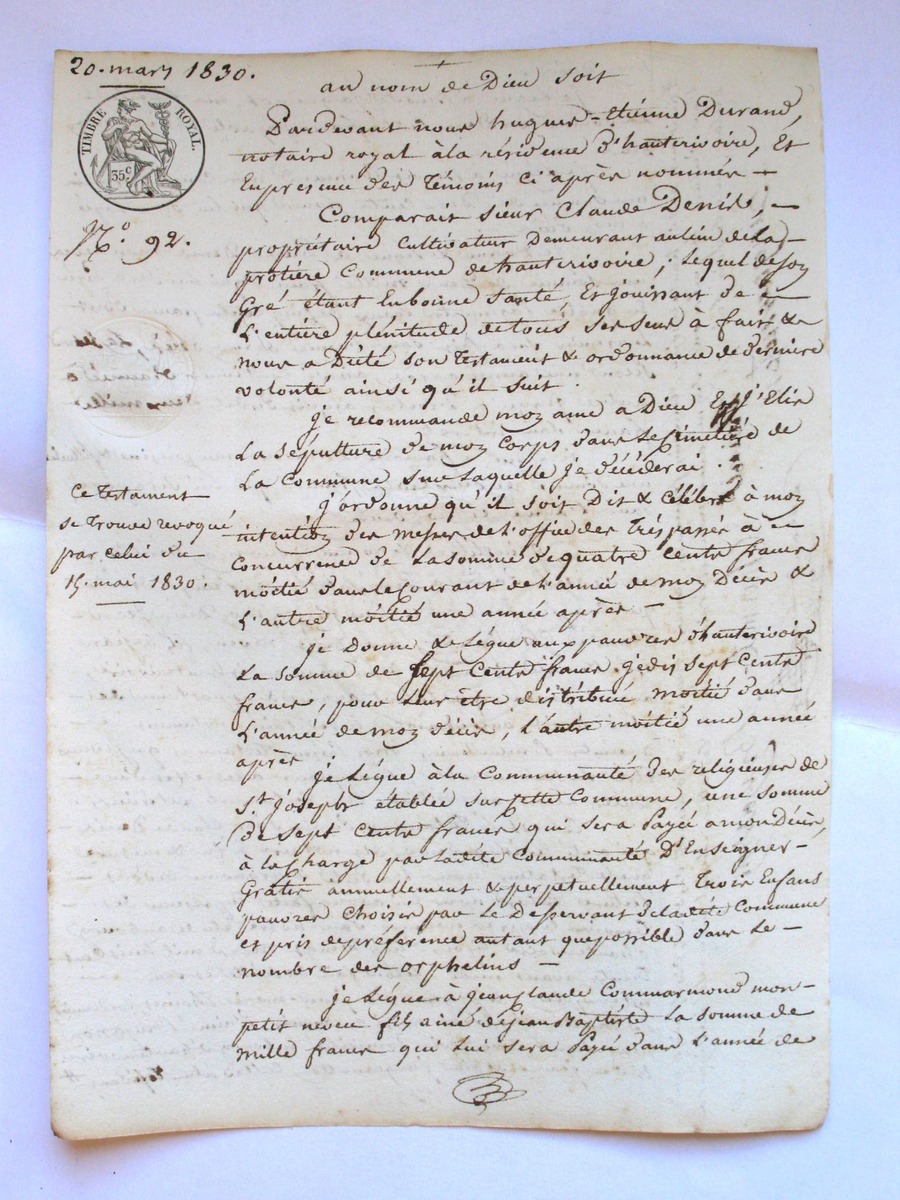 20. mars 1830.
TIMBRE ROYAL.
35.c
N.o 92.
au nom de Dieu soit
Pardevant nous hugues-Etienne Durand,
notaire royal à la résidence d'hauterivoire, Et
En presence des Temoins ci après nommés —
Comparait sieur Claude Denis, —
propriétaire Cultivateur Demeurant au lieu de la
protière Commune de hauterivoire; Lequel de son
Gré étant En bonne santé, Et jouissant de —
L'entière plénitude de tous ses sens à fait &
nous a Dicté son Testament & ordonnance de derniere
volonté ainsi qu'il suit.
je recommande mon ame a Dieu Et j'Elis
La sépulture de mon Corps dans le Cimetière de
La Commune sur laquelle je décéderai.
j'ordonne qu'il soit Dit & célébré à mon
intention des messes de l'office des Tréspassés à —
Concurrence de La somme de quatre Cents francs
moitié dans le Courant de l'année de mon Décès &
L'autre moitié une année après —
Ce Testament
se Trouve revoqué
par celui du
15. mai 1830.
je Donne & Lègue aux pauvres d'hauterivoire
La somme de sept Cents francs je dis sept Cents
francs, pour leur être distribué moitié dans
L'année de mon décès, L'autre moitié une année
après
je Lègue à la Communauté des religieuses de
S.t joseph établie sur cette Commune, une somme
de sept Cents francs qui sera Payée a mon Décès,
à la Charge par Ladite Communauté D'Enseigner —
Gratis annuellement & perpetuellement Trois Enfans
pauvres Choisis par Le Desservant de ladite Commune
et pris de préférence autant que possible dans Le —
nombre des orphelins —
je Lègue à jean Claude Commarmond mon —
petit neveu fils ainé de jean Baptiste La somme de
mille francs qui Lui sera Payée dans L'année de